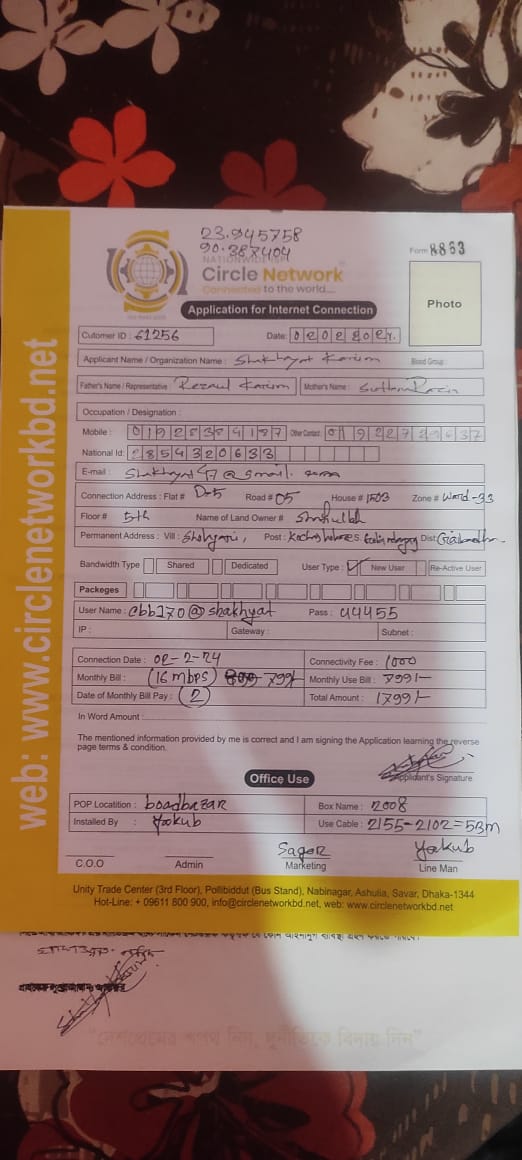 23.945758
90.387404
NATIONWIDE ISP
Circle Network
Connected to the world....
Form 8853
Application for Internet Connection
Photo
Cutomer ID : 61256
Date:
Applicant Name / Organization Name : Shakhayat Karium
Blood Group :
Father's Name / Representative : Rezaul Karium
Mother's Name :
Occupation / Designation :
Mobile :
Other Contact :
National Id: 2854320633
E-mail : shakhayat47@gmail.com
Connection Address : Flat # D-5 Road # 05 House # 1503 Zone # Ward-33
Floor # 5th Name of Land Owner #
Permanent Address : Vill : Post : P.S. Dist:
Bandwidth Type Shared Dedicated User Type : New User Re-Active User
Packeges
User Name : cbb170@shakhyat Pass : 44455
IP : Gateway : Subnet :
Connection Date : 02-2-24 Connectivity Fee : 1000
Monthly Bill : (16 mbps) 800 799/- Monthly Use Bill : 799/-
Date of Monthly Bill Pay : (2) Total Amount : 1799/-
In Word Amount :
The mentioned information provided by me is correct and I am signing the Application learning the reverse
page terms & condition.
Applicant's Signature
Office Use
POP Locatition : boadbazar Box Name : 2008
Installed By : Yookub Use Cable : 2155-2102=53m
Sagor Yookub
C.O.O Admin Marketing Line Man
Unity Trade Center (3rd Floor), Pollibiddut (Bus Stand), Nabinagar, Ashulia, Savar, Dhaka-1344
Hot-Line: + 09611 800 900, info@circlenetworkbd.net, web: www.circlenetworkbd.net
web: www.circlenetworkbd.net
"দেশপ্রেমের শপথ নিন, দুর্নীতিকে বিদায় দিন"